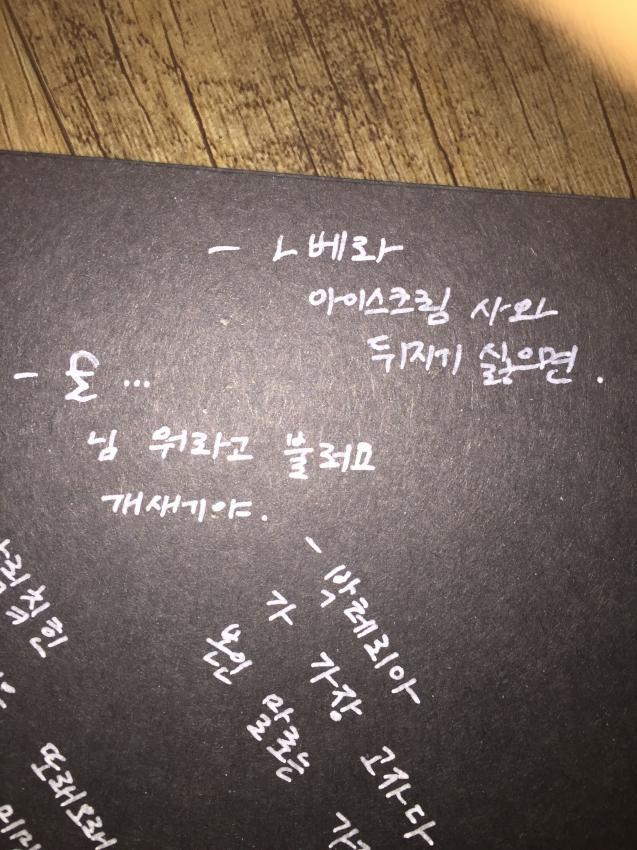 - ㄴ베라
아이스크림 사와
뒤지기 싫으면.
- ...
님 뭐라고 불러요
개새기야.
- 박테리아
가 가장 고차다
본인 말로는
림칙한
또래오래